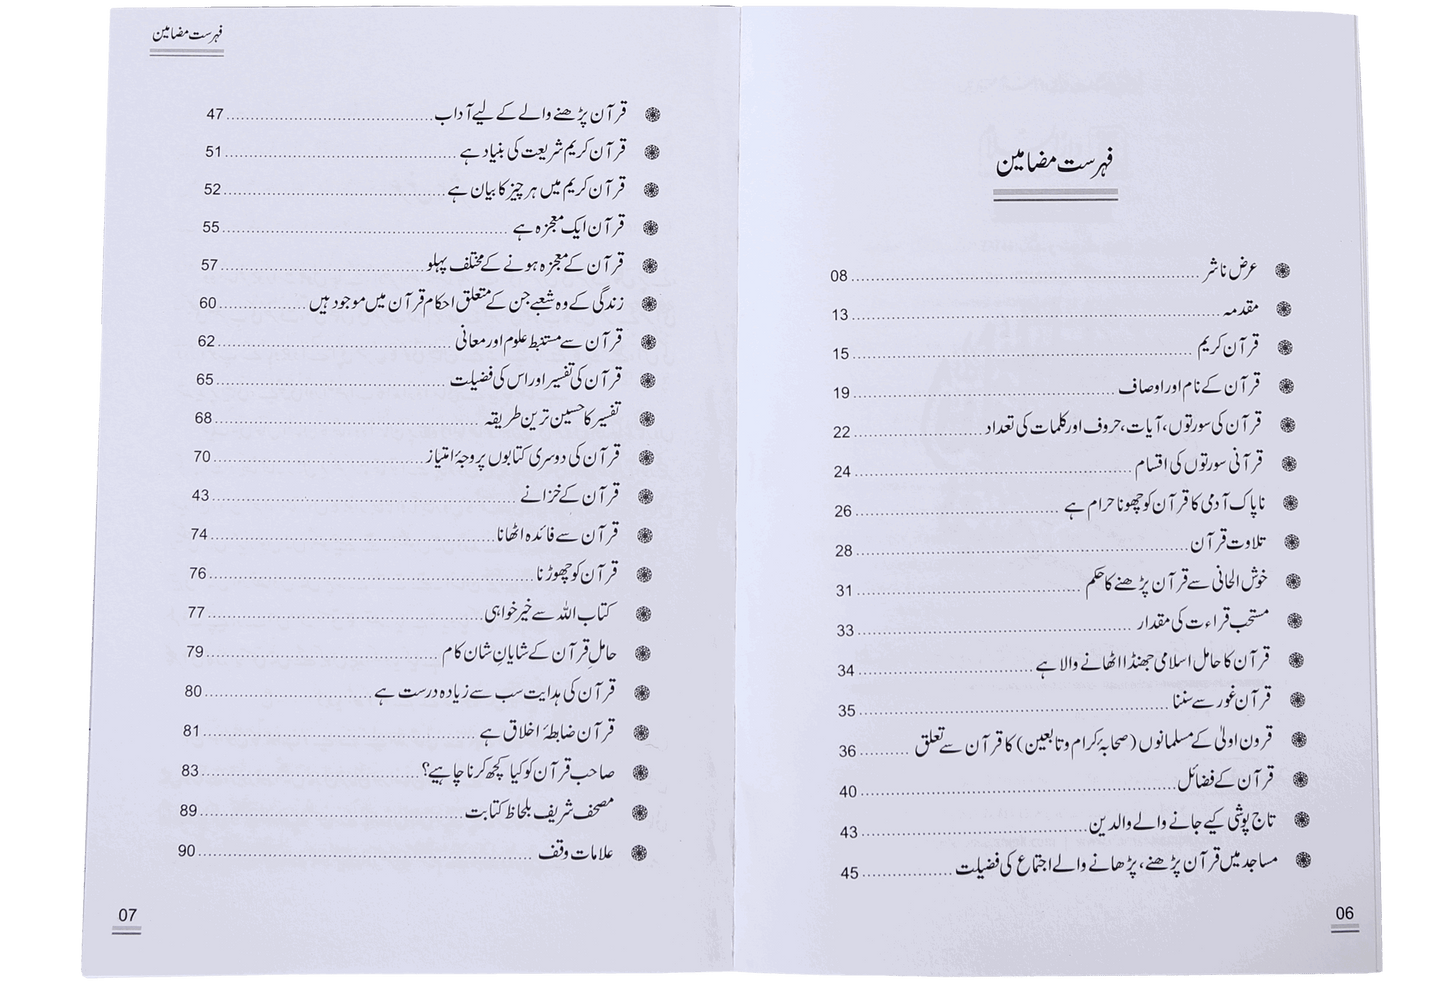 فہرست مضامین
عرض ناشر 08
مقدمہ 13
قرآن کریم 15
قرآن کے نام اور اوصاف 19
قرآن کی سورتوں، آیات، حروف اور کلمات کی تعداد 22
قرآنی سورتوں کی اقسام 24
ناپاک آدمی کا قرآن کو چھونا حرام ہے 26
تلاوت قرآن 28
خوش الحانی سے قرآن پڑھنے کا حکم 31
مستحب قراءت کی مقدار 33
قرآن کا حامل اسلامی جھنڈا اٹھانے والا ہے 34
قرآن غور سے سننا 35
قرون اولیٰ کے مسلمانوں (صحابۂ کرام و تابعین) کا قرآن سے تعلق 36
قرآن کے فضائل 40
تاج پوشی کیے جانے والے والدین 43
مساجد میں قرآن پڑھنے، پڑھانے والے اجتماع کی فضیلت 45
06
فہرست مضامین
قرآن پڑھنے والے کے لیے آداب 47
قرآن کریم شریعت کی بنیاد ہے 51
قرآن کریم میں ہر چیز کا بیان ہے 52
قرآن ایک معجزہ ہے 55
قرآن کے معجزہ ہونے کے مختلف پہلو 57
زندگی کے وہ شعبے جن کے متعلق احکام قرآن میں موجود ہیں 60
قرآن سے مستنبط علوم اور معانی 62
قرآن کی تفسیر اور اس کی فضیلت 65
تفسیر کا حسین ترین طریقہ 68
قرآن کی دوسری کتابوں پر وجۂ امتیاز 70
قرآن کے خزانے 43
قرآن سے فائدہ اٹھانا 74
قرآن کو چھوڑنا 76
کتاب اللہ سے خیر خواہی 77
حاملِ قرآن کے شایانِ شان کام 79
قرآن کی ہدایت سب سے زیادہ درست ہے 80
قرآن ضابطۂ اخلاق ہے 81
صاحب قرآن کو کیا کچھ کرنا چاہیے؟ 83
مصحف شریف بلحاظ کتابت 89
علامات وقف 90
07